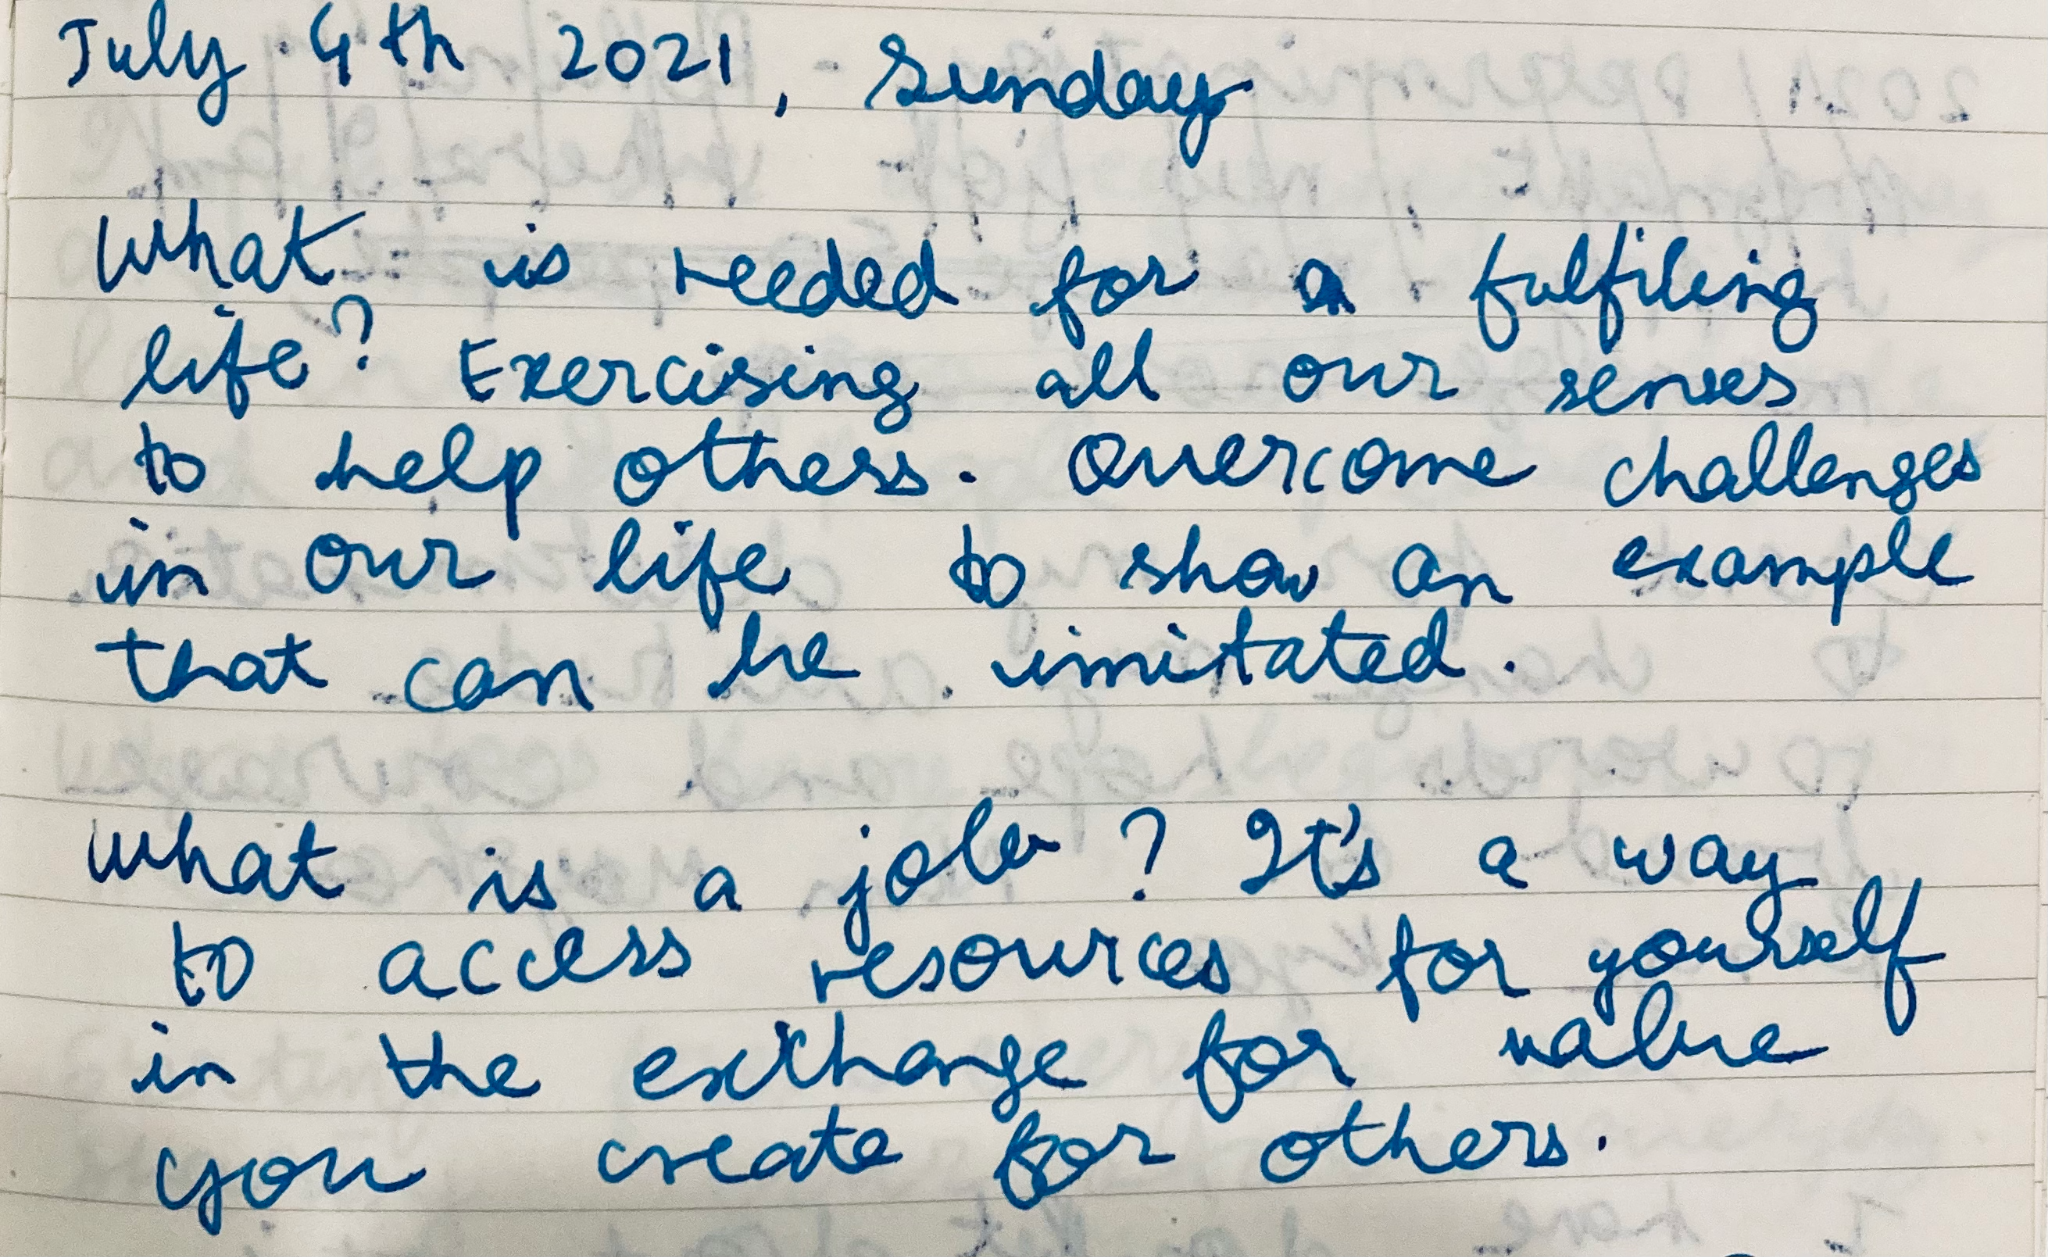 July 4th 2021, Sunday
What is needed for a fulfiling
life? Exercising all our senses
to help others. Overcome challenges
in our life to show an example
that can be imitated.
What is a job? It's a way
to access resources for yourself
in the exchange for value
you create for others.